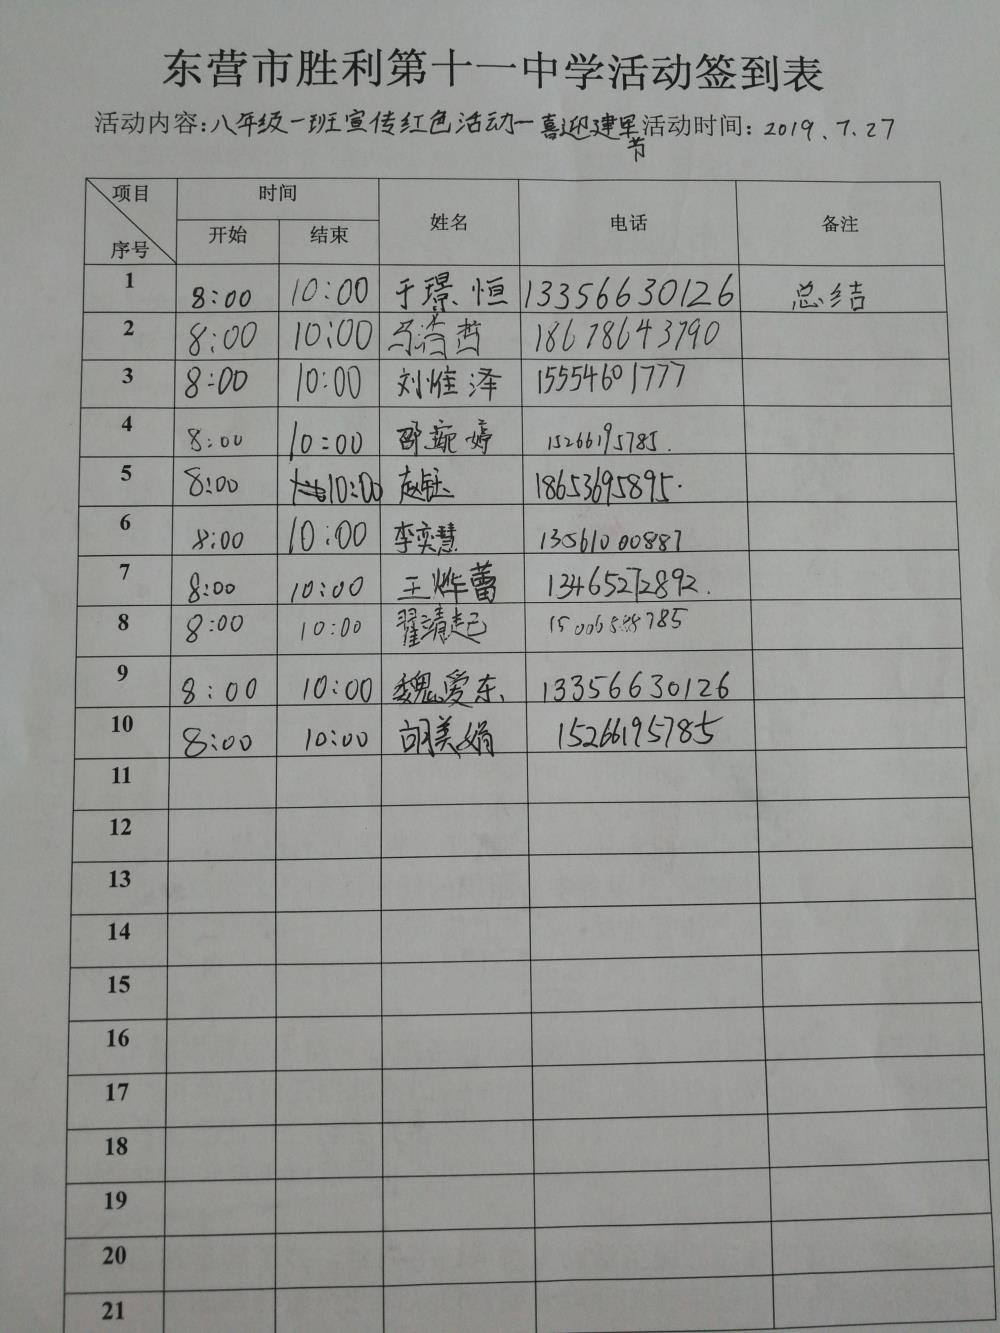 东营市胜利第十一中学活动签到表
活动内容:八年级一班宣传红色活动一喜迎建军节 活动时间: 2019.7.27
项目 时间 姓名 电话 备注
序号 开始 结束
1 8:00 10:00 于璟恒 13356630126 总结
2 8:00 10:00 马浩哲 18678643790
3 8:00 10:00 刘惟泽 15554601777
4 8:00 10:00 邵琬婷 15266195785.
5 8:00 10:00 赵钰 18653695895.
6 8:00 10:00 李奕慧 13561000887
7 8:00 10:00 王烨蕾 13465272892.
8 8:00 10:00 翟清起
9 8:00 10:00 魏爱东 13356630126
10 8:00 10:00 胡美娟 15266195785
11
12
13
14
15
16
17
18
19
20
21